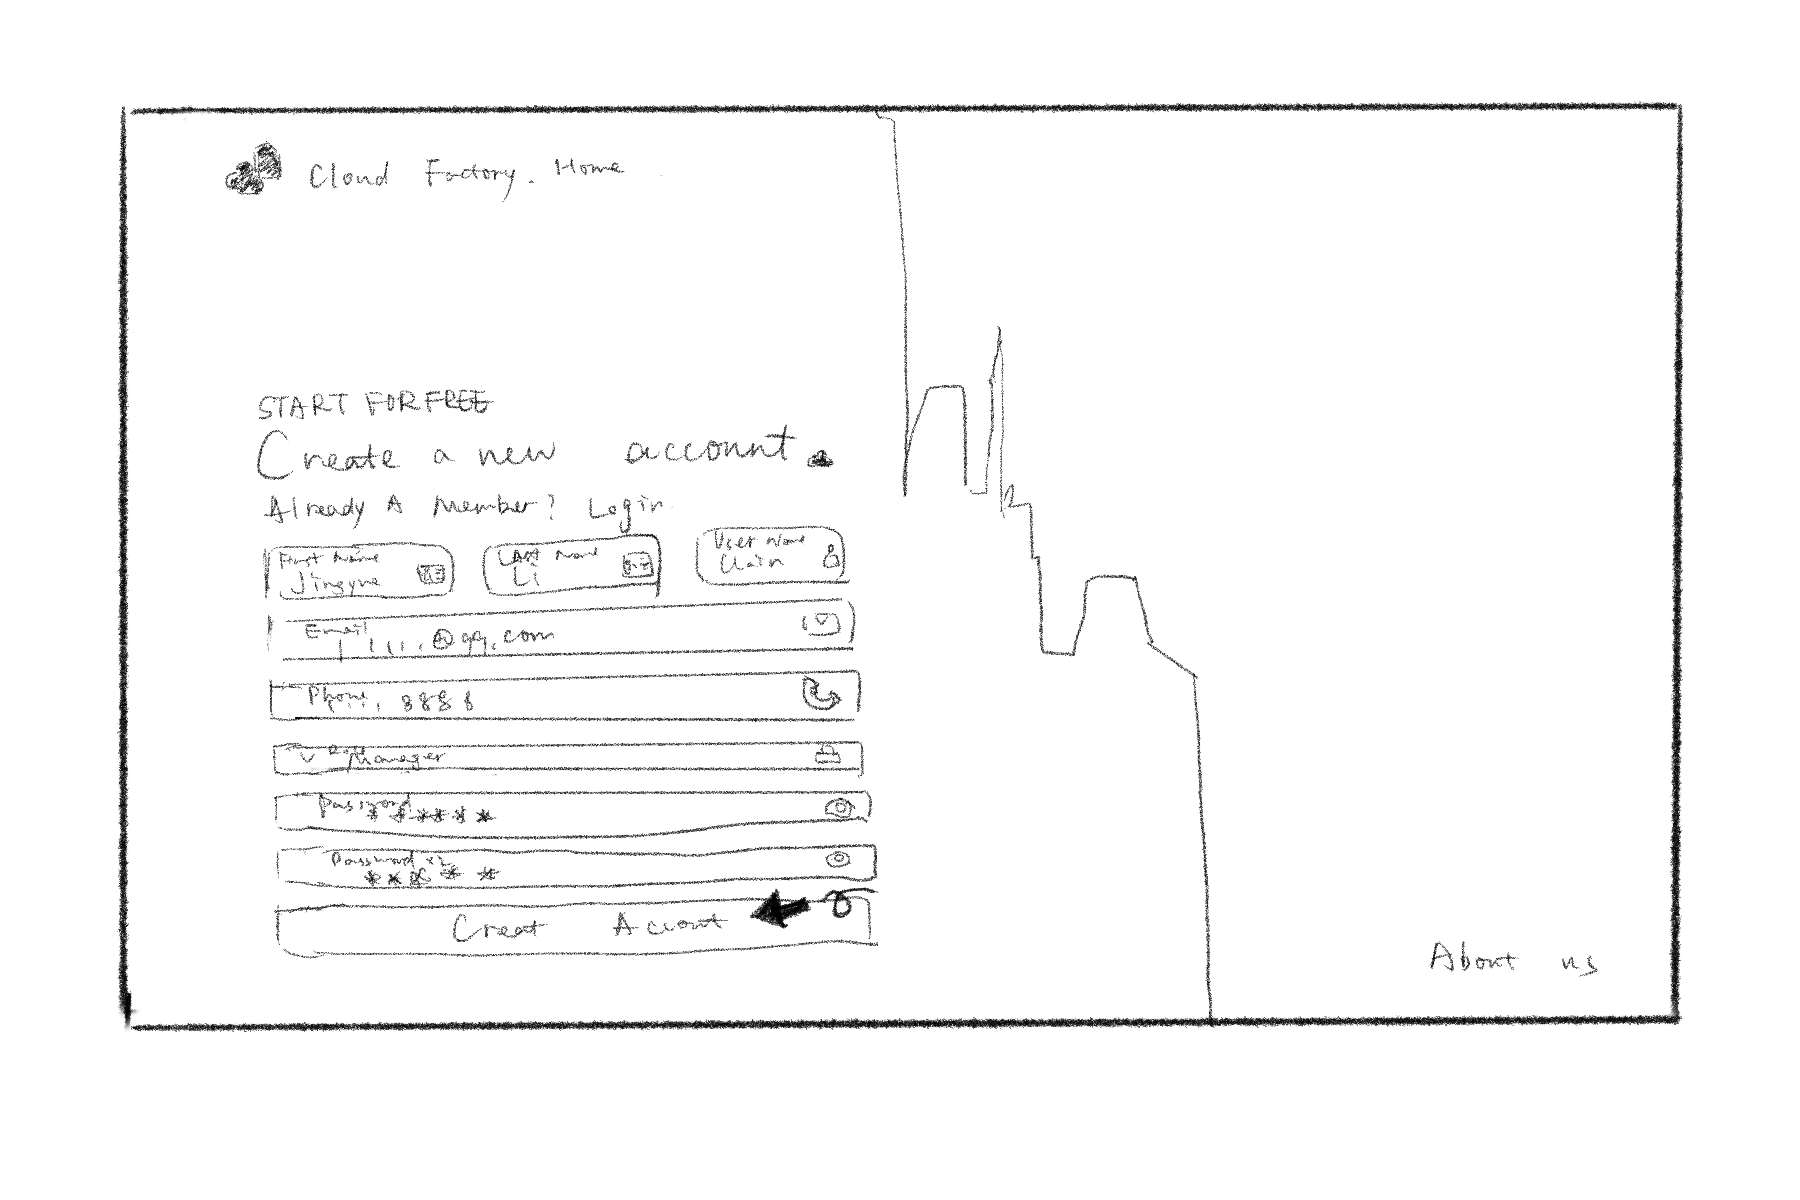 Cloud Factory. Home
START FOR FREE
Create a new account
Already A Member? Login
First Name
Last Name
User Name
Li
Email
@qq.com
Phone
8888
Manager
Password
******
Password x2
*****
Creat Account
About us